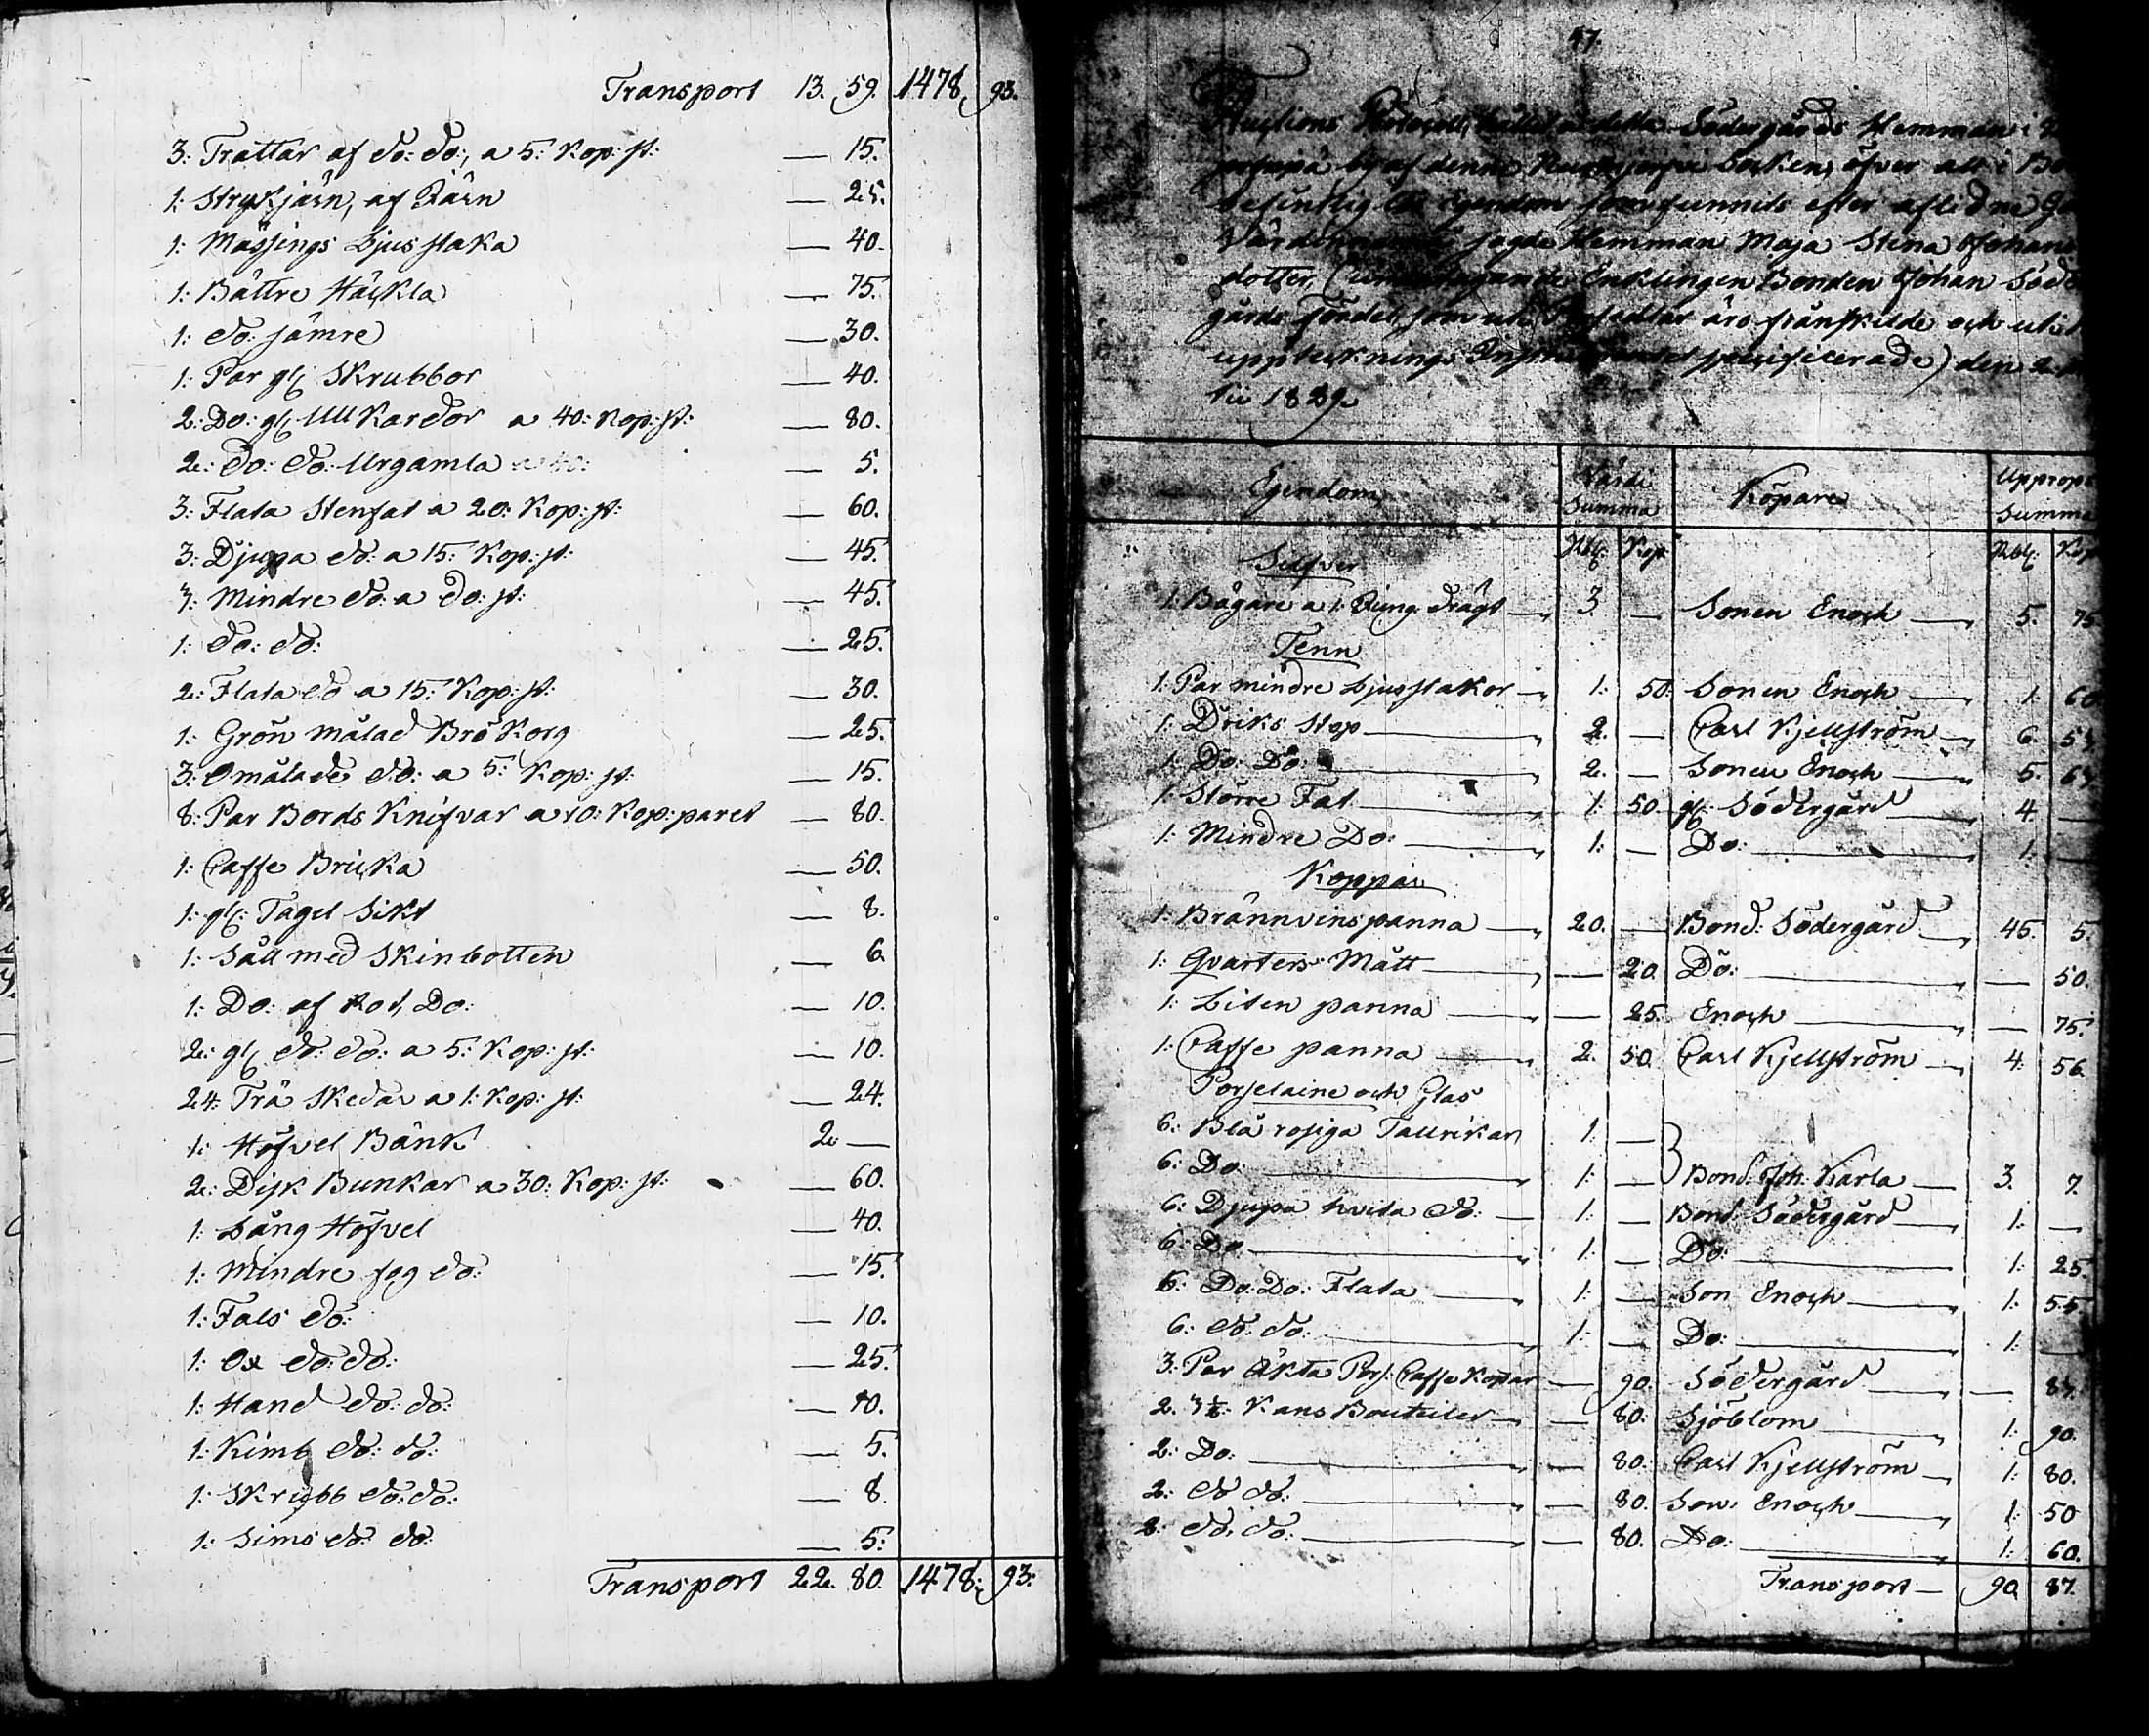 Transport 13. 59. 1478. 93.
3: Trattar af do: do:, a 5: Kop: st: — 15.
1: Strykjärn, af Järn — 25.
1: Mässings Ljusstaka — 40.
1: Bättre Häckla — 75.
1: do: sämre — 30.
1: Par gl: Skrubbor — 40.
2: Do: gl: Ull Kardor a 40: Kop: st: — 80.
2: do: do: Urgamla — 5.
3: Flata Stenfat a 20: Kop: st: — 60.
3: Djupa do: a 15: Kop: st: — 45.
3: Mindre do: a do: st: — 45.
1: do: do: — 25.
2: Flata do a 15: Kop: st: — 30.
1: Grön målad Brö Korg — 25.
3: Omålade do: a 5: Kop: st: — 15.
8: Par Bords Knifvar a 10: Kop: paret — 80.
1: Caffe Bricka — 50.
1: gl: Tagel Sikt — 8.
1: Såll med Skinbotten — 6.
1: Do: af Rot, Do: — 10.
2: gl: do: do: a 5: Kop: st: — 10.
24: Trä Skedar a 1: Kop: st: — 24.
1: Höfvel Bänk 2. —
2: Disk Bunkar a 30: Kop: st: — 60.
1: Lång Höfvel — 40.
1: Mindre fog do: — 15.
1: Fals do: — 10.
1: Ox do: do: — 25.
1: Hand do: do: — 10.
1: Kimb do: do: — 5.
1: Skrubb do: do: — 8.
1: Sims do: do: — 5.
Transport 22. 80. 1478. 93.
47.
Auctions Protocoll, hållet å detta Södergårds Hemman i
by af denna Socken, öfver allt i
befintelig lös Egendom som funnits efter aflidne
Värdinnan sagde Hemman Maja Stina Johans
dotter, (undantagande Enklingen Bonden Johan Söder
gårds fördel, som uti äro frånskilde och uti
upptecknings Instrumentet specificerade) den 2.
tii 1829.
Egendom Värde Summa Köpare Upprops Summa
Rbl: Kop: Rbl: Kop
Silfver
1: Bägare a 1: Jung: drägt 3. — Sonen Enoch 5. 75.
Tenn
1: Par mindre Ljusstakor 1: 50. Sonen Enoch 1. 60
1: Driks Stop 2. — Carl Kjellström 6. 55.
1: Do: Do: 2. — Sonen Enoch 5. 65.
1: Större Fat 1: 50. gl: Södergård 4 —
1: Mindre Do: 1: — Do: 1: —
Koppar
1: Brännvinspanna 20. — Bond: Södergård 45. 5.
1: Qvarters Mått — 20. Do: — 50.
1: Liten panna — 25. Enoch — 75.
1: Caffe panna 2. 50. Carl Kjellström 4. 56.
Porselaine och Glas
6: Blå rosiga Tallrikar 1: —
6: Do: 1: — Bond. Joh: Karla 3. 7.
6: Djupa hvita do: 1: — Bond: Södergård 1: —
6: Do 1: — Do: 1: 25.
6: Do: Do: Flata 1: — Son Enoch 1: 55
6: do: do: 1: — Do: 1: —
3: Par Äkta Pors: Caffe Kopar — 90. Södergård — 85.
2. Kans Bouteiler — 80. Sjöblom 1: 90.
2: Do: — 80. Carl Kjellström 1: 80.
2: do do: — 80. Son: Enoch 1: 50
2: do: do: — 80. Do: 1: 60.
Transport — 90. 87.